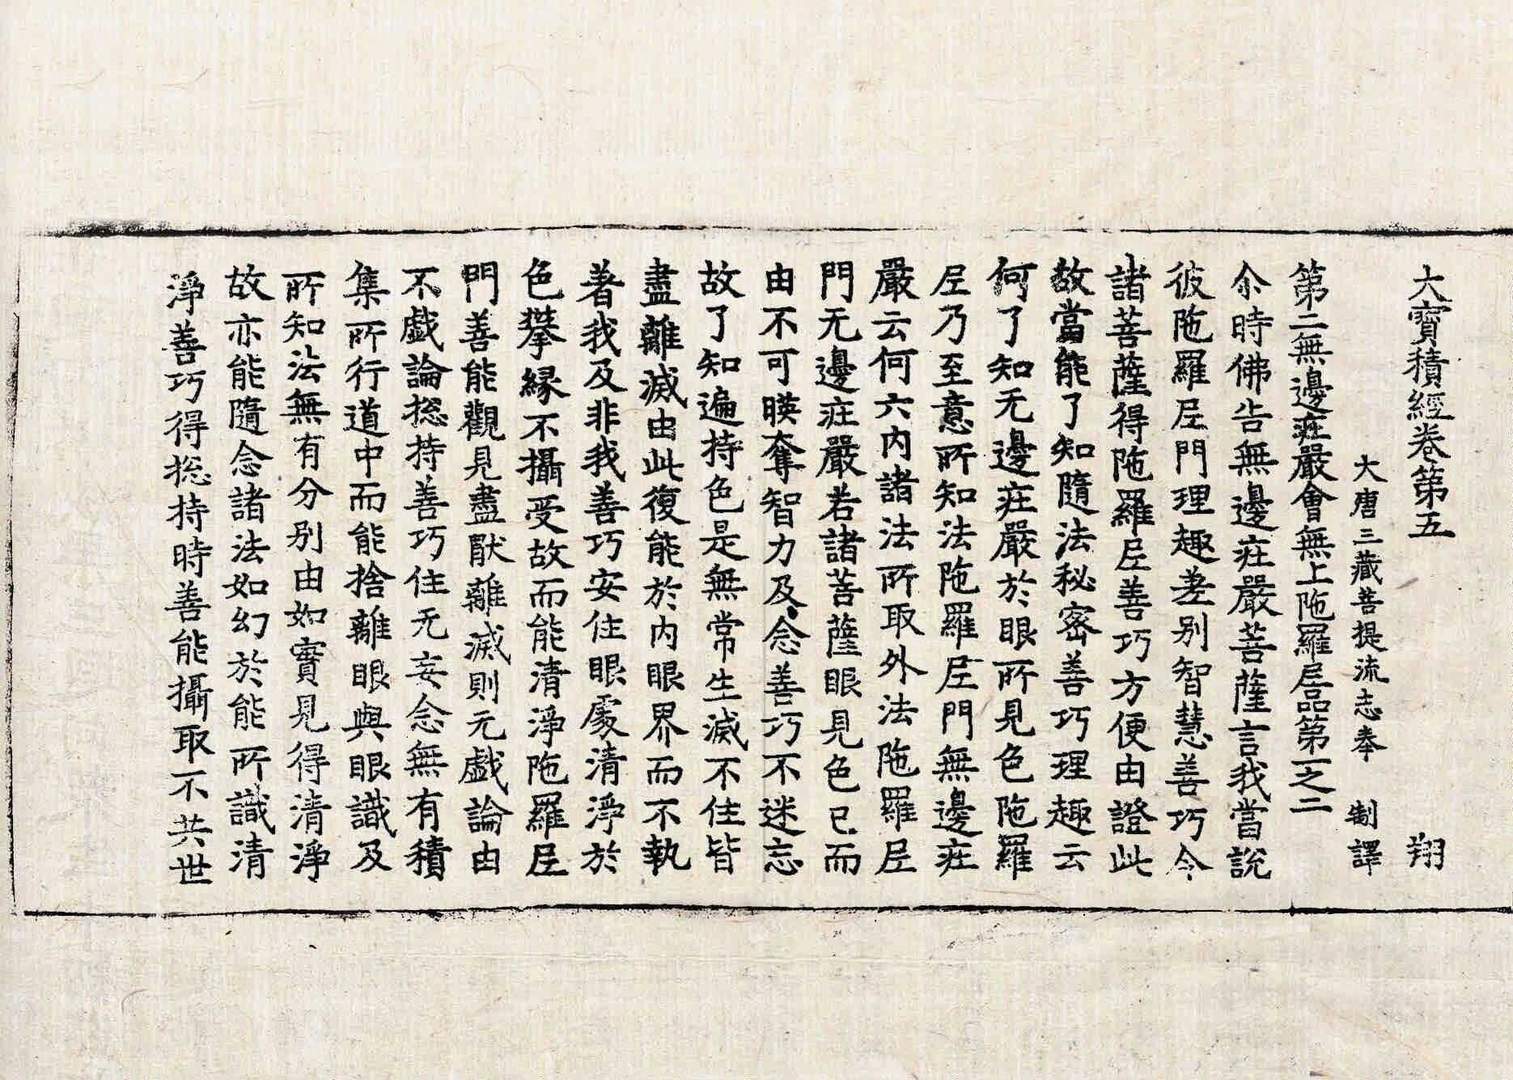 大寶積經卷第五　翔
大唐三藏菩提流志奉　制譯
第二無邊莊嚴會無上陁羅尼品第一之二
尒時佛告無邊莊嚴菩薩言我當說
彼陁羅尼門理趣差別智慧善巧令
諸菩薩得陁羅尼善巧方便由證此
故當能了知隨法秘密善巧理趣云
何了知无邊莊嚴於眼所見色陁羅
尼乃至意所知法陁羅尼門無邊莊
嚴云何六內諸法所取外法陁羅尼
門无邊莊嚴若諸菩薩眼見色已而
由不可暎奪智力及念善巧不迷忘
故了知遍持色是無常生滅不住皆
盡離滅由此復能於內眼界而不執
著我及非我善巧安住眼處清淨於
色攀緣不攝受故而能清淨陁羅尼
門善能觀見盡猒離滅則无戲論由
不戲論揔持善巧住无妄念無有積
集所行道中而能捨離眼與眼識及
所知法無有分別由如實見得清淨
故亦能隨念諸法如幻於能所識清
淨善巧得揔持時善能攝取不共世